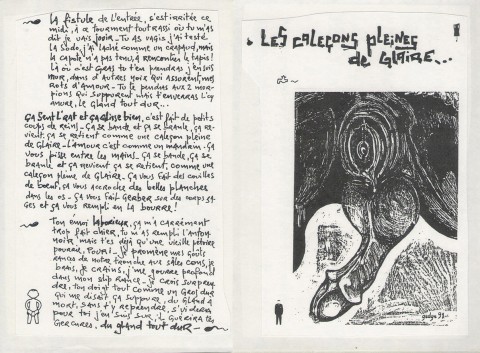 La fistule de l'entrée, s'est irritée ce
midi, à ce tourment tout rassi où tu m'as
dit je vais jouir. Tu as vagis, j'ai tasté
La Sodo, j'ai lâché comme un crapaud, mais
la capote n'a pas tenu, à rencontrer le tapis!
Là où c'est gras tu t'en prendras j'en suis
mort, dans d'autres noix qui assurent, mes
rots d'amour - Tu te pendras aux 2 mor-
pions qui suppurent mais t'enverras l'cy
amure, le gland tout dur...
ça sent l'art et ça gline bien, c'est fait de petits
coups de reins - ça se bande et ça se branle, ça re-
vient, ça se retient comme une caleçon pleine
de glaire - L'amour c'est comme un mandarin. ça
vous pisse entre les mains - ça se bande, ça se
branle et ça revient, ça se retient, comme une
caleçon pleine de glaire. ça vous fait des couilles
de bœuf, ça vous accroche des belles planches
dans les os - ça vous fait gerber sur des corps sa-
ges et ça vous remplit an la bourre!
Ton envoi laborieux, ça m'a carrément
trop fait chier, tu m'as rempli l'anton-
noir, mais t'es déjà qu'une vieille pétoire
pourrie. Pourri - je promène mes goûts
dans de notre tranche aux sales cons, je
bande, je crains, j'me gourre profond
dans mon slip rance - je crains surpren-
dre, ton doigt tout comme un gros dur
qui me disait ça suppure, du gland à
mort, sans t'y reprendre, s'il viendra
pour toi j'en suis sûr, il guérira tes
gerçures, du gland tout dur -
LES CALEÇONS PLEINES
de GLAIRE...